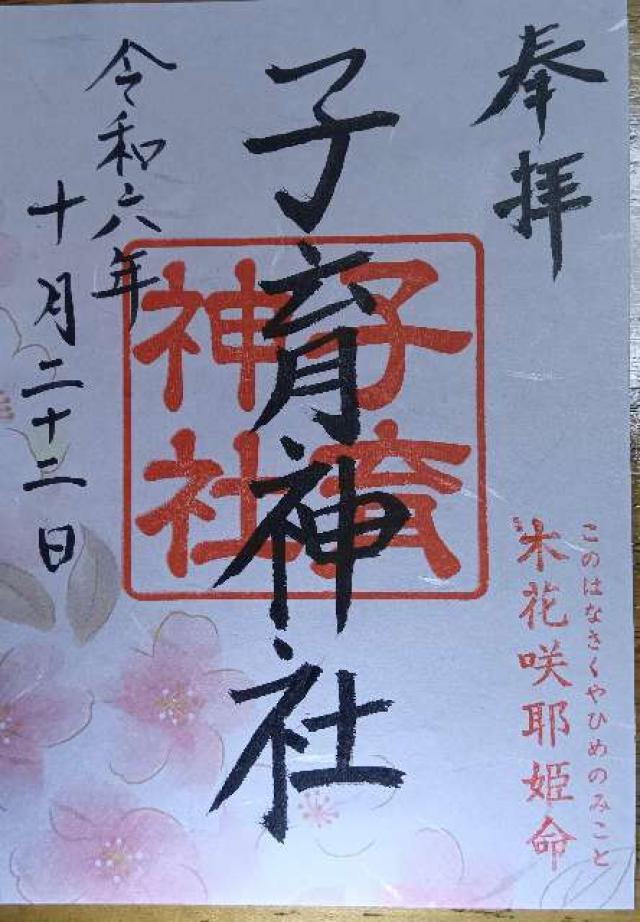 奉拝
このはなさくやひめのみこと
木花咲耶姫命
子育神社
子育
神社
令和六年
十月二十二日